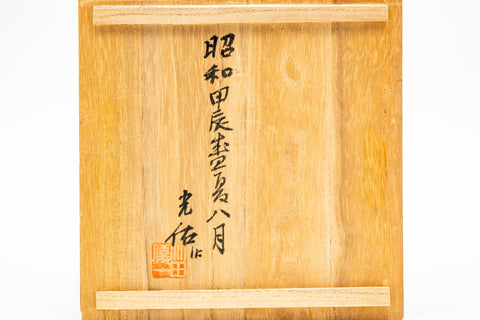 昭和甲辰盛夏八月
光佑作